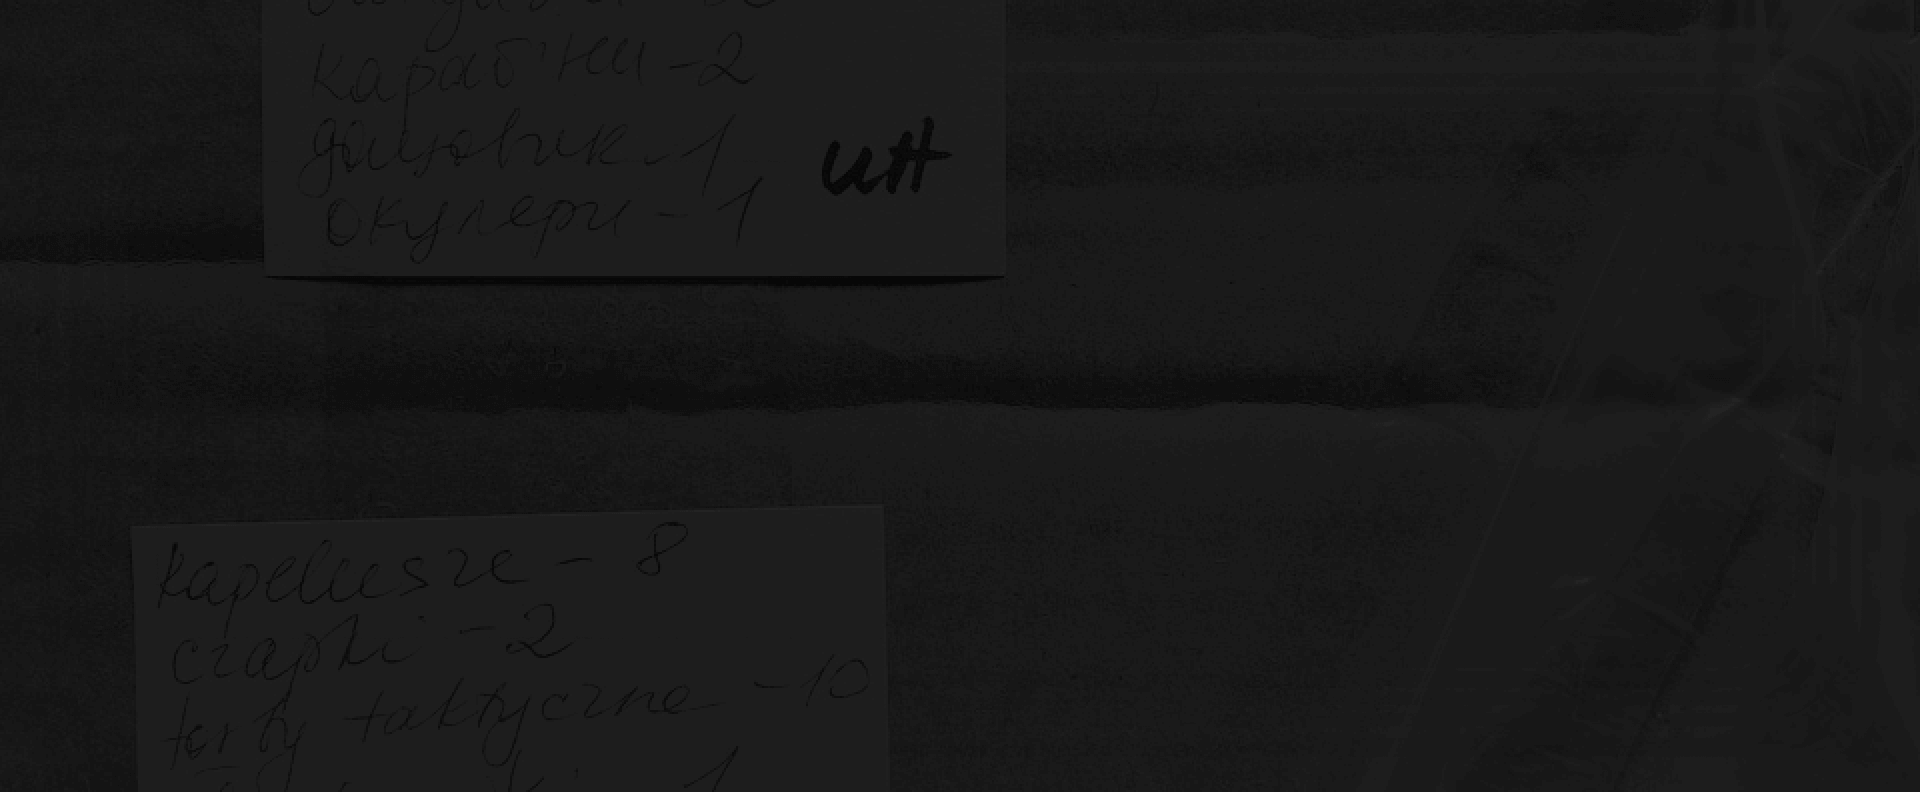 карабіни - 2
дощовик - 1
окуляри - 1
ИН
kapelusze - 8
czapki - 2
torby taktyczne - 10